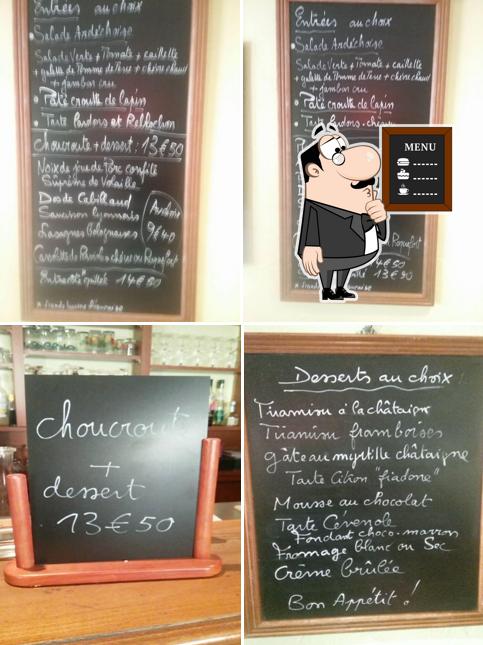 Entrées au choix
• Salade Ardéchoise
Salade Verte + Tomate + caillette
+ galette de Pomme de Terre + chèvre chaud
+ jambon cru
• Pâté croutte de lapin
• Tarte Lardons et Reblochon
Choucroute + dessert : 13 € 50
Noix de joue de Porc confite
Suprême de Volaille
Dos de Cabillaud
Saucisson Lyonnais
Lasagnes Bolognaises
Au choix
9 € 40
Entrecôte grillée 14 € 50
Entrées au choix
• Salade Ardéchoise
Salade Verte + Tomate + caillette
+ galette de Pomme de Terre + chèvre chaud
+ jambon cru
• Pâté croutte de lapin
Tarte Lardons
MENU
Roquefort
14 € 50
choucroute
+
dessert
13 € 50
Desserts au choix :
Tiramisu à la châtaigne
Tiramisu framboises
gâteau myrtille châtaigne
Tarte Citron "fiadone"
Mousse au chocolat
Tarte Cévenole
Fondant choco-marron
Fromage blanc ou Sec
Crème brûlée
Bon Appétit !